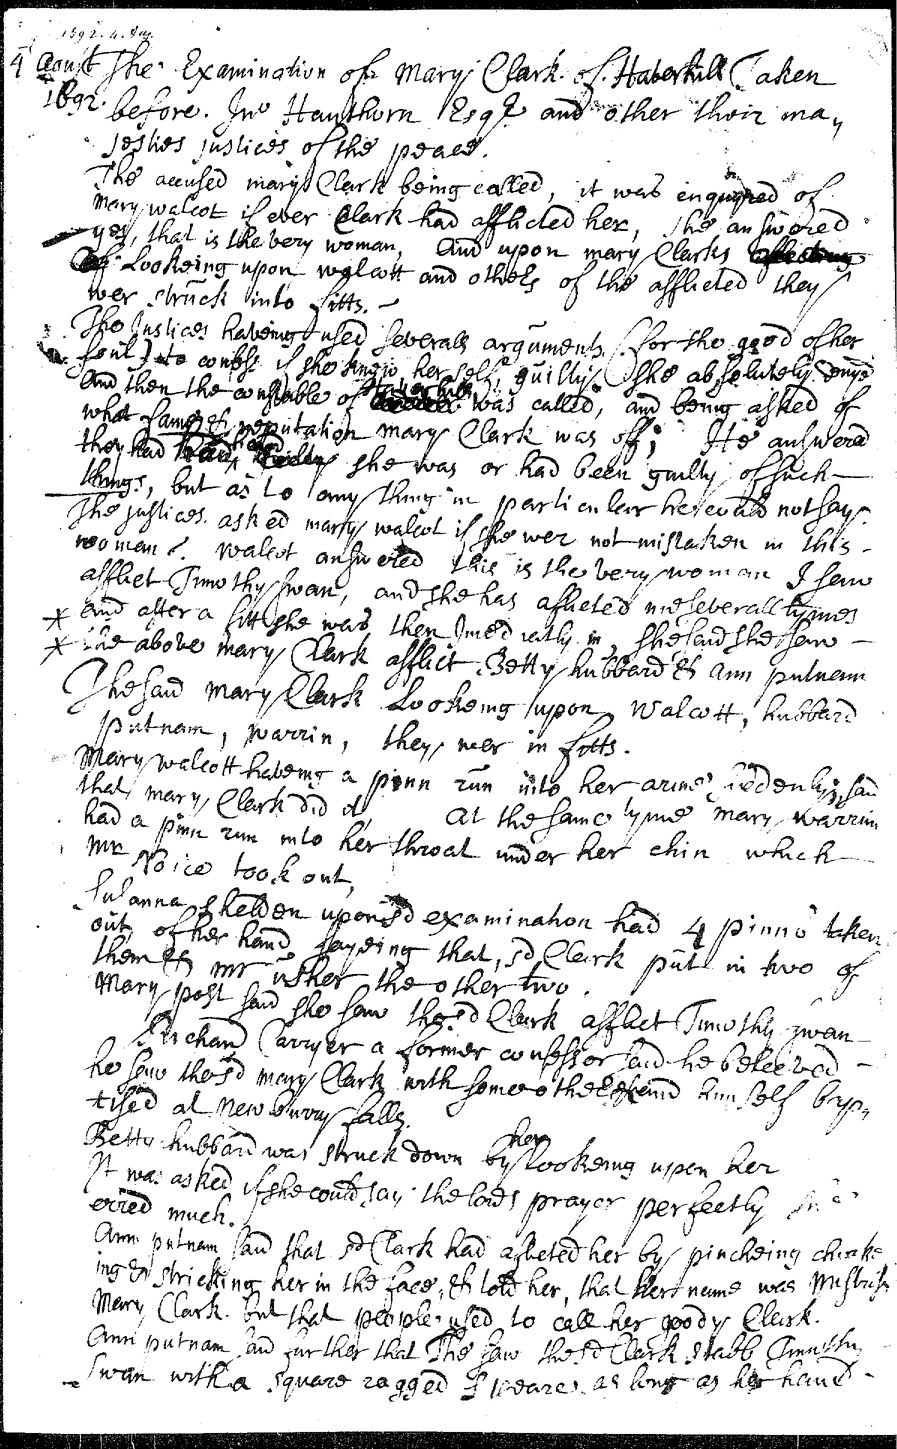 1692. 4. Aug.
4 Agust The Examination of Mary Clark of Haberhill Taken
1692. before. Jno Hauthorn Esqr and other their ma,,
jesties justices of the peace.
The accused mary Clark being called, it was enquired of
mary walcot if ever Clark had afflicted her, she answered
yes, that is the very woman, And upon mary Clarks
Lookeing upon walcott and others of the afflicted they
wer struck into fitts. -
The Justices haveing used severall arguments (for the good of her
soul) to confess if she knew her self guilty she absolutely denyed
And then the constable of Haverhill was called, and being asked of
what fame & reputation mary Clark was off, He answered
they had heard she was or had been guilty of such
things, but as to any thing in particuler he could not say.
The justices asked mary walcot if she wer not mistaken in this -
woman. Walcot answered this is the very woman I saw
afflict Timothy Swan, and she has aflicted me severall tymes
and after a fitt she was then Imediatly in, she said she saw -
the above mary Clark afflict Betty hubbard & ann putnam
The said mary Clark Lookeing upon Walcott, hubbard
putnam, warrin, they wer in fitts.
Mary walcott haveing a pinn run into her arme suddenly, said
that mary Clark did it At the same tyme mary warrin
had a pinn run into her throat under her chin which
mr Noice took out,
Susanna sheldon upon sd examination had 4 pinns taken
out of her hand sayeing that, sd Clark put in two of
them & mr usher the other two.
Mary post said she saw the sd Clark afflict Timothy swan -
Richard Carryer a former confessor said he beleeved -
he saw the sd mary Clark with some others and himself bap,,
tised at newburry falls.
Betty hubbard was struck down by her lookeing upon her
It was asked if she could say the lords prayer perfectly she
erred much.
Ann putnam said that sd Clark had aflicted her by pincheing choake
ing & strieking her in the face, & told her, that her name was Mistriss
Mary Clark. but that people used to call her goody Clark.
Ann putnam said further that she saw the sd Clark stabb Timothy
swan with a square ragged speare as long as her hand -